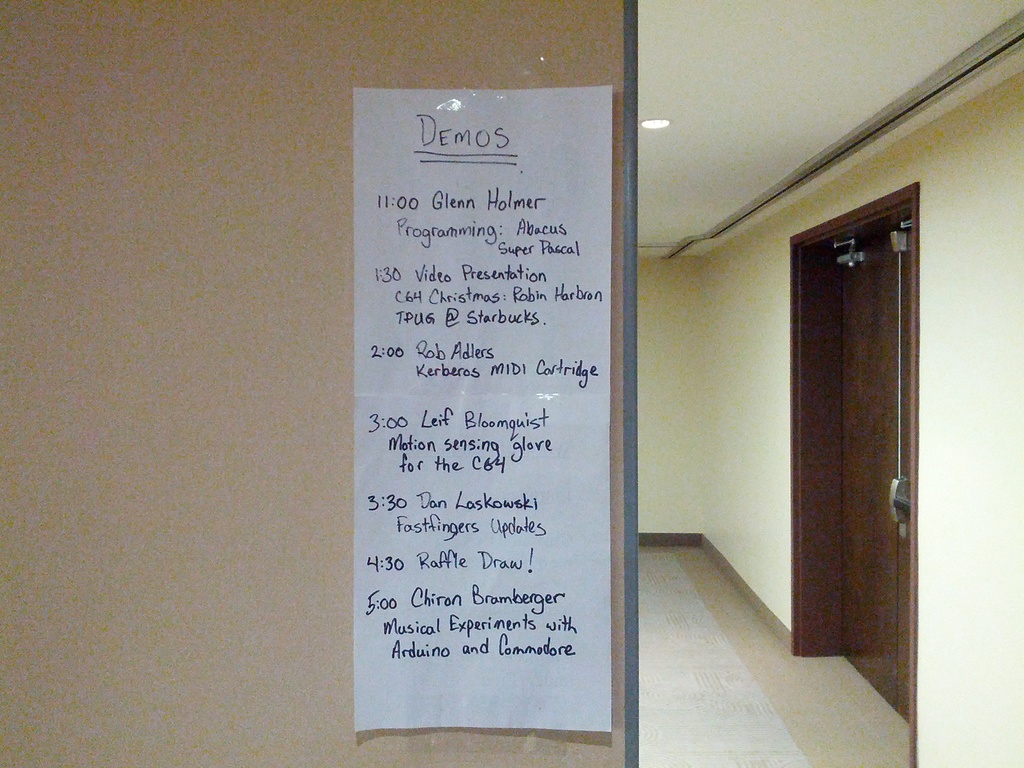 DEMOS
11:00 Glenn Holmer
Programming: Abacus
Super Pascal
1:30 Video Presentation
C64 Christmas: Robin Harbron
TPUG @ Starbucks.
2:00 Rob Adlers
Kerberos MIDI Cartridge
3:00 Leif Bloomquist
Motion sensing glove
for the C64
3:30 Dan Laskowski
Fastfingers Updates
4:30 Raffle Draw!
5:00 Chiron Bramberger
Musical Experiments with
Arduino and Commodore